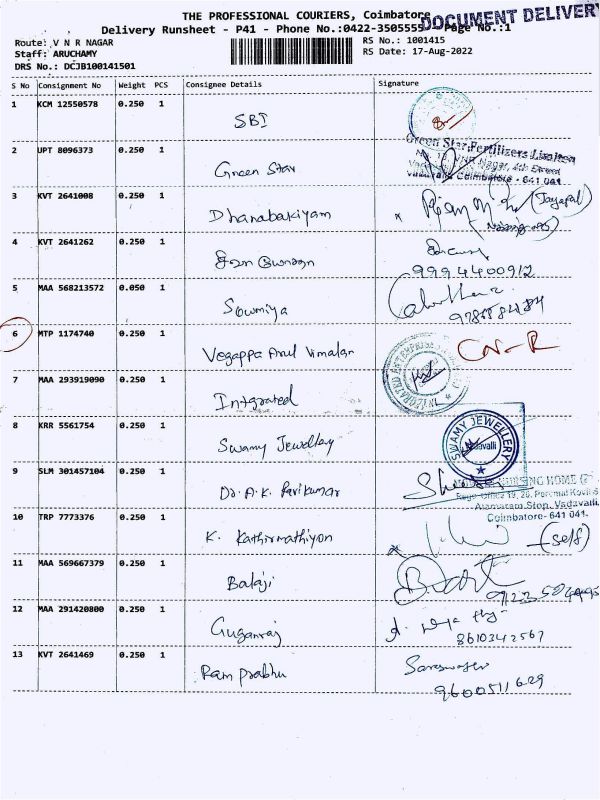 THE PROFESSIONAL COURIERS, Coimbatore
DOCUMENT DELIVERY
Delivery Runsheet - P41 - Phone No.:0422-3505555 Page No.:1
Route: V N R NAGAR
RS No.: 1001415
Staff: ARUCHAMY
RS Date: 17-Aug-2022
DRS No.: DCJB100141501
S No Consignment No Weight PCS Consignee Details Signature
1 KCM 12550578 0.250 1
SBI
2 UPT 8096373 0.250 1
Green Star Fertilizers Limited
Nagar, 4th Street
Coimbatore - 641 041
Green Star
3 KVT 2641008 0.250 1
Dhanabakiyam
x (Jayapal)
4 KVT 2641262 0.250 1
9994400912
5 MAA 568213572 0.050 1
Sowmiya
6 MTP 1174740 0.250 1
Vegappa Arul Vimalan
7 MAA 293919090 0.250 1
Intgrated
8 KRR 5561754 0.250 1
Swamy Jewellery
SWAMY JEWELLERY
Vadavalli
9 SLM 301457104 0.250 1
Dr. A.K. Ravikumar
NURSING HOME
19, 20, Perumal Kovil S
Stop, Vadavalli,
Coimbatore- 641 041.
10 TRP 7773376 0.250 1
K. Kathirmathiyon
x (self)
11 MAA 569667379 0.250 1
Balaji
12 MAA 291420800 0.250 1
Guganraj
8610342567
13 KVT 2641469 0.250 1
Ram prabhu
9600511629